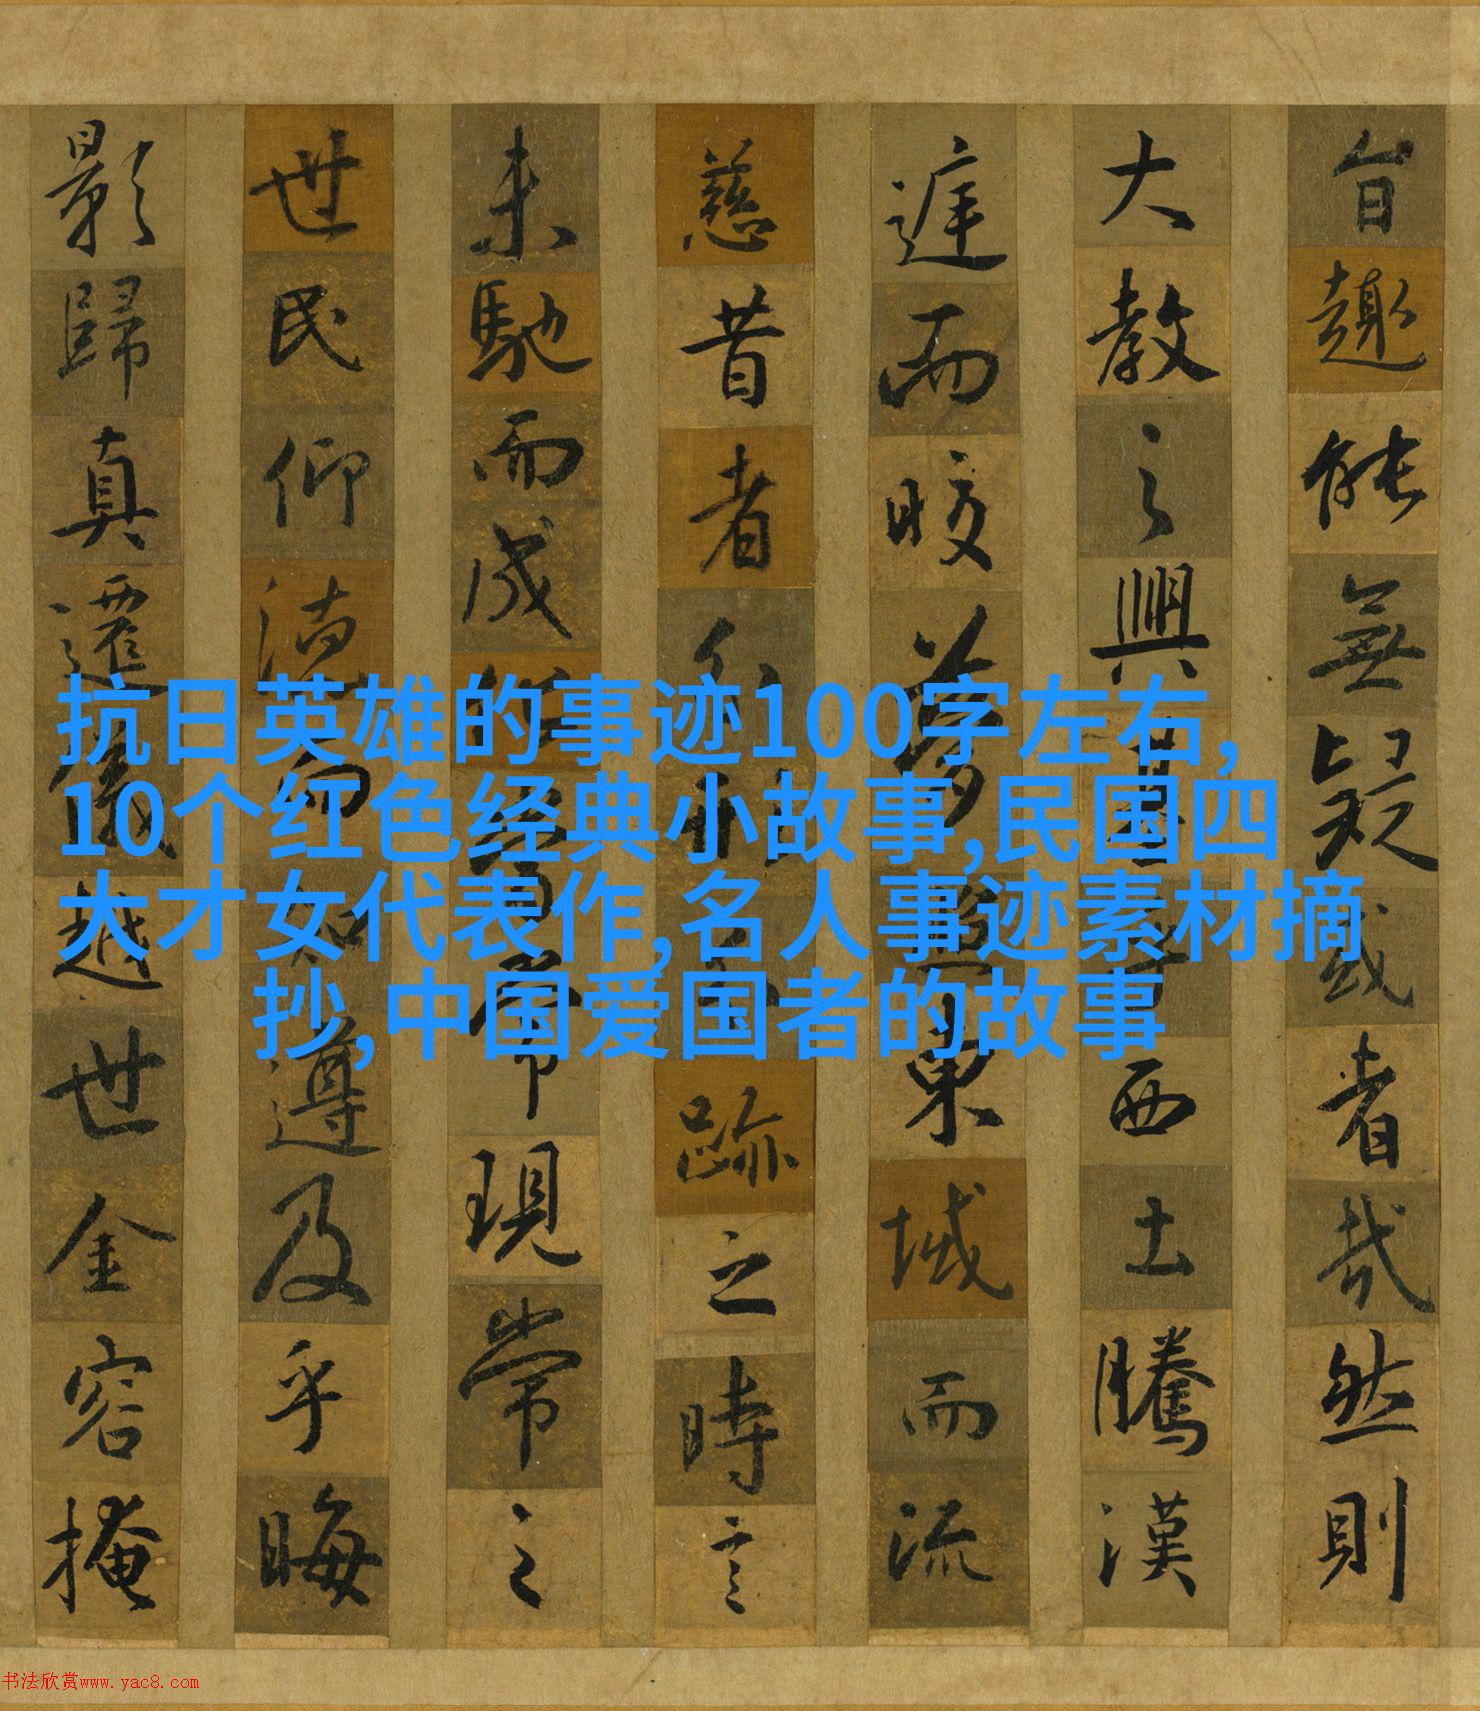 旨趣能無疑或者哉然則
大教之興基乎西土騰漢
庭而皎夢照東域而流
慈昔者分形分跡之時言
未馳而成化當常現常之
世民仰德而知遵及乎晦
影歸真遷儀越世金容掩
抗日英雄的事迹100字左右,
10个红色经典小故事,民国四
大才女代表作,名人事迹素材摘
抄,中国爱国者的故事
书法欣赏www.yac8.com